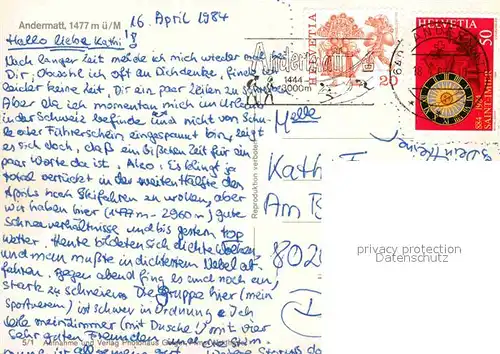 Andermatt, 1477 m ü/M
16. April 1984
Hallo liebe Kathi!
Nach langer Zeit melde ich mich wieder mal bei
Dir. Obwohl ich oft an Dich denke, finde ich
leider keine Zeit, Dir ein paar Zeilen zu
Aber da ich momentan mich im Urlaub
in der Schweiz befinde und nicht von Schu-
le oder Führerschein eingespannt bin, zeigt
es sich doch, daß ein bißchen Zeit für ein
paar Worte da ist. Also: Es klingt ja
total verrückt in der zweiten Hälfte des
Aprils noch Skifahren zu wollen, aber
wir haben hier (1477 m - 2960 m) gute
Schneeverhältnisse und bis gestern top
Wetter. Heute bildeten sich dichte Wolken
und man mußte in dichtestem Nebel ab-
fahren. Gegen abend fing es auch noch an,
stark zu schneien. Die Gruppe hier (mein
Sportverein) ist schwer in Ordnung. Ich
teile mein Zimmer (mit Dusche!) mit vier
sehr guten Freunden
ist
5/1 Aufnahme und Verlag Photohaus
Reproduktion verboten
Andermatt
1444
3000m
HELVETIA
20
HELVETIA
50
884 1984
SAINT-IMIER
6490
ANDERMATT
Melle
Kath
Am B
802
privacy protection
Datenschutz